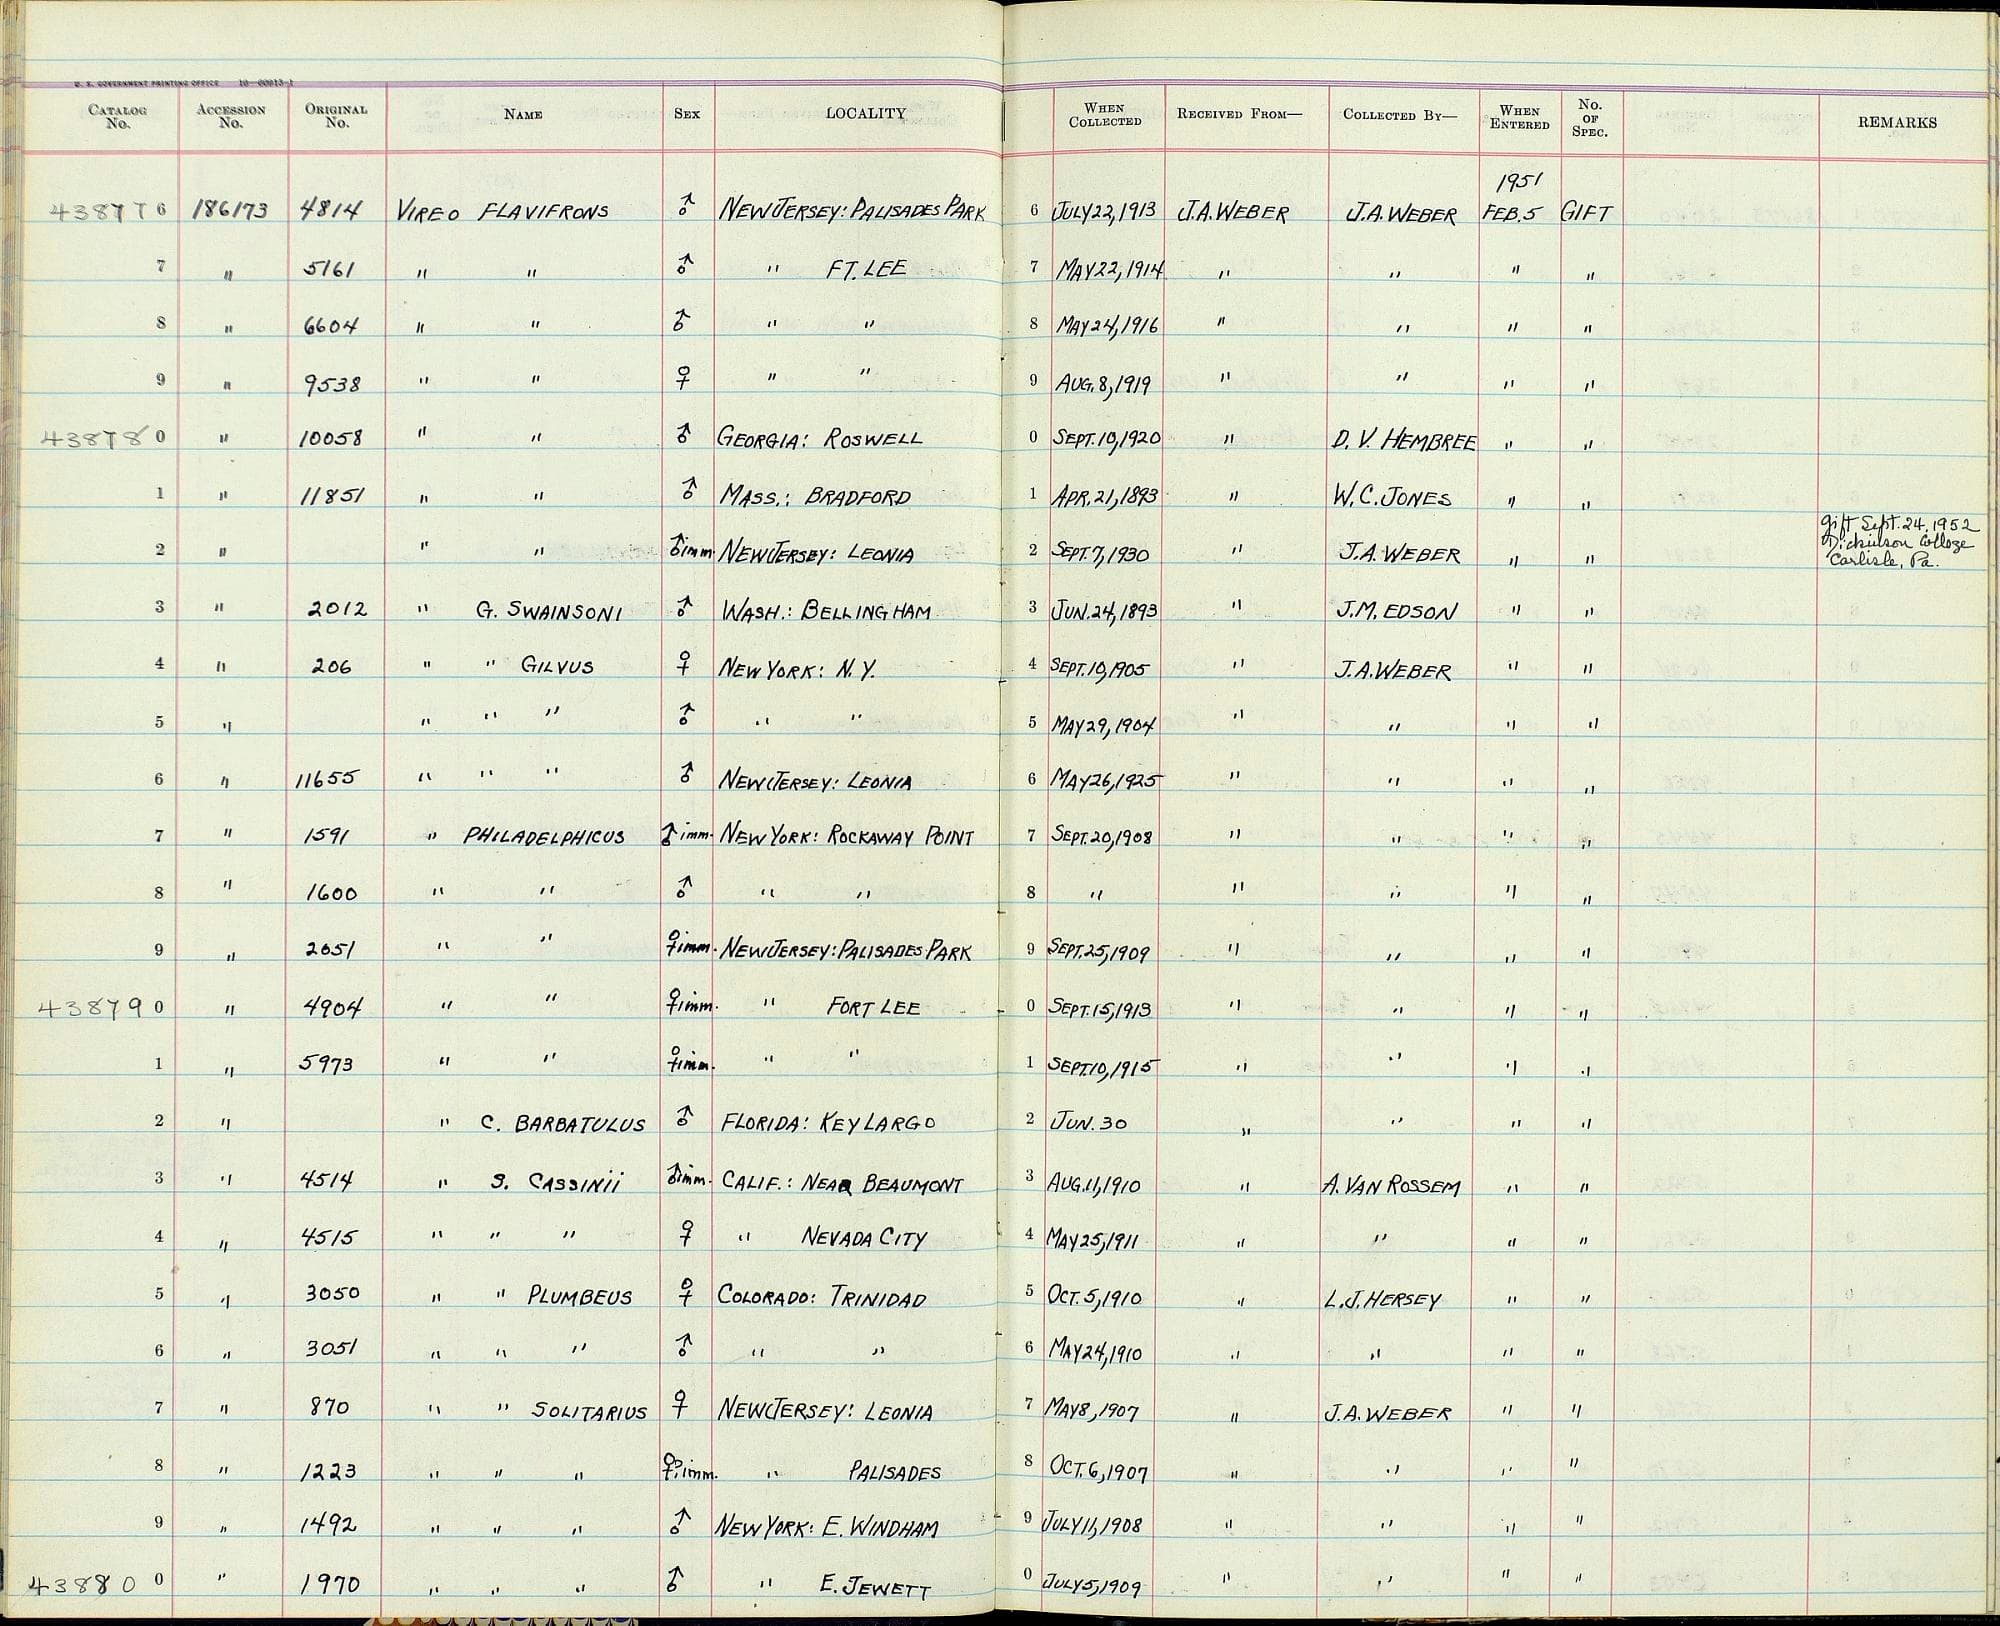 U. S. GOVERNMENT PRINTING OFFICE 16—60813-1
CATALOG No. ACCESSION No. ORIGINAL No. NAME SEX LOCALITY WHEN COLLECTED RECEIVED FROM— COLLECTED BY— WHEN ENTERED No. OF SPEC. REMARKS
1951
438776 186173 4814 VIREO FLAVIFRONS ♂ NEW JERSEY: PALISADES PARK 6 JULY 22, 1913 J.A. WEBER J.A. WEBER FEB. 5 GIFT
7 " 5161 " " ♂ " FT. LEE 7 MAY 22, 1914 " " " "
8 " 6604 " " ♂ " " 8 MAY 24, 1916 " " " "
9 " 9538 " " ♀ " " 9 AUG. 8, 1919 " " " "
438780 " 10058 " " ♂ GEORGIA: ROSWELL 0 SEPT. 10, 1920 " D. V. HEMBREE " "
1 " 11851 " " ♂ MASS.: BRADFORD 1 APR. 21, 1893 " W. C. JONES " "
2 " " " ♂ imm. NEW JERSEY: LEONIA 2 SEPT. 7, 1930 " J.A. WEBER " " Gift Sept. 24, 1952
Dickinson College
Carlisle, Pa.
3 " 2012 " G. SWAINSONI ♂ WASH.: BELLINGHAM 3 JUN. 24, 1893 " J.M. EDSON " "
4 " 206 " " GILVUS ♀ NEW YORK: N.Y. 4 SEPT. 10, 1905 " J.A. WEBER " "
5 " " " " ♂ " " 5 MAY 29, 1904 " " " "
6 " 11655 " " " ♂ NEW JERSEY: LEONIA 6 MAY 26, 1925 " " " "
7 " 1591 " PHILADELPHICUS ♂ imm. NEW YORK: ROCKAWAY POINT 7 SEPT. 20, 1908 " " " "
8 " 1600 " " ♂ " " 8 " " " " "
9 " 2051 " " ♀ imm. NEW JERSEY: PALISADES PARK 9 SEPT. 25, 1909 " " " "
438790 " 4904 " " ♀ imm. " FORT LEE 0 SEPT. 15, 1913 " " " "
1 " 5973 " " ♀ imm. " " 1 SEPT. 10, 1915 " " " "
2 " " C. BARBATULUS ♂ FLORIDA: KEY LARGO 2 JUN. 30 " " " "
3 " 4514 " S. CASSINII ♂ imm. CALIF.: NEAR BEAUMONT 3 AUG. 11, 1910 " A. VAN ROSSEM " "
4 " 4515 " " " ♀ " NEVADA CITY 4 MAY 25, 1911 " " " "
5 " 3050 " " PLUMBEUS ♀ COLORADO: TRINIDAD 5 OCT. 5, 1910 " L. J. HERSEY " "
6 " 3051 " " " ♂ " " 6 MAY 24, 1910 " " " "
7 " 870 " " SOLITARIUS ♀ NEW JERSEY: LEONIA 7 MAY 8, 1907 " J.A. WEBER " "
8 " 1223 " " " ♀? imm. " PALISADES 8 OCT. 6, 1907 " " " "
9 " 1492 " " " ♂ NEW YORK: E. WINDHAM 9 JULY 11, 1908 " " " "
438800 " 1970 " " " ♂ " E. JEWETT 0 JULY 5, 1909 " " " "